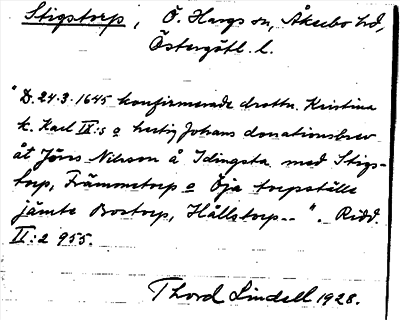 Stigstorp, Ö. Hargs sn, Åkerbo hd,
Östergötl. l.
"D. 24.3.1645 konfirmerade drottn. Kristina
k. Karl IX:s o hertig Johans donationsbrev
åt Jöns Nilsson å Idingsta med Stigs-
torp, Främmetorp o Öja torpställe
jämte Brostorp, Hållstorp--". Ridd.
II:2 955.
Thord Lindell 1928.